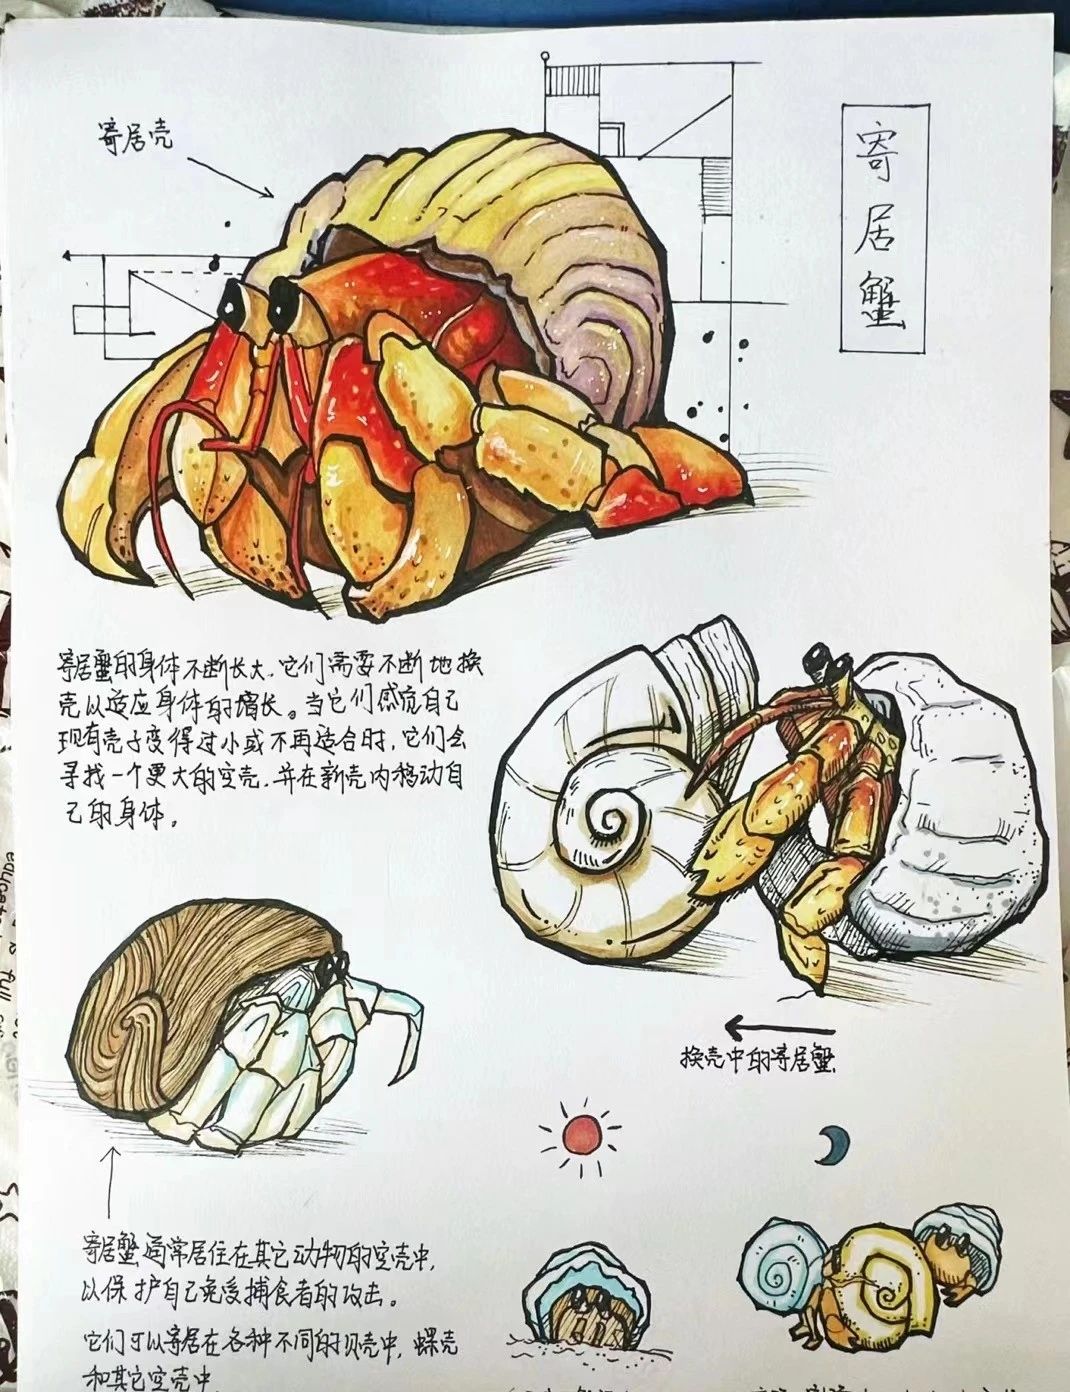 寄居壳
寄居蟹
寄居蟹的身体不断长大，它们需要不断地换
壳以适应身体的增长。当它们感觉自己
现有壳子变得过小或不再适合时，它们会
寻找一个更大的空壳，并在新壳内移动自
己的身体。
换壳中的寄居蟹
寄居蟹通常居住在其它动物的空壳中，
以保护自己免受捕食者的攻击。
它们可以寄居在各种不同的贝壳中，螺壳
和其它空壳中